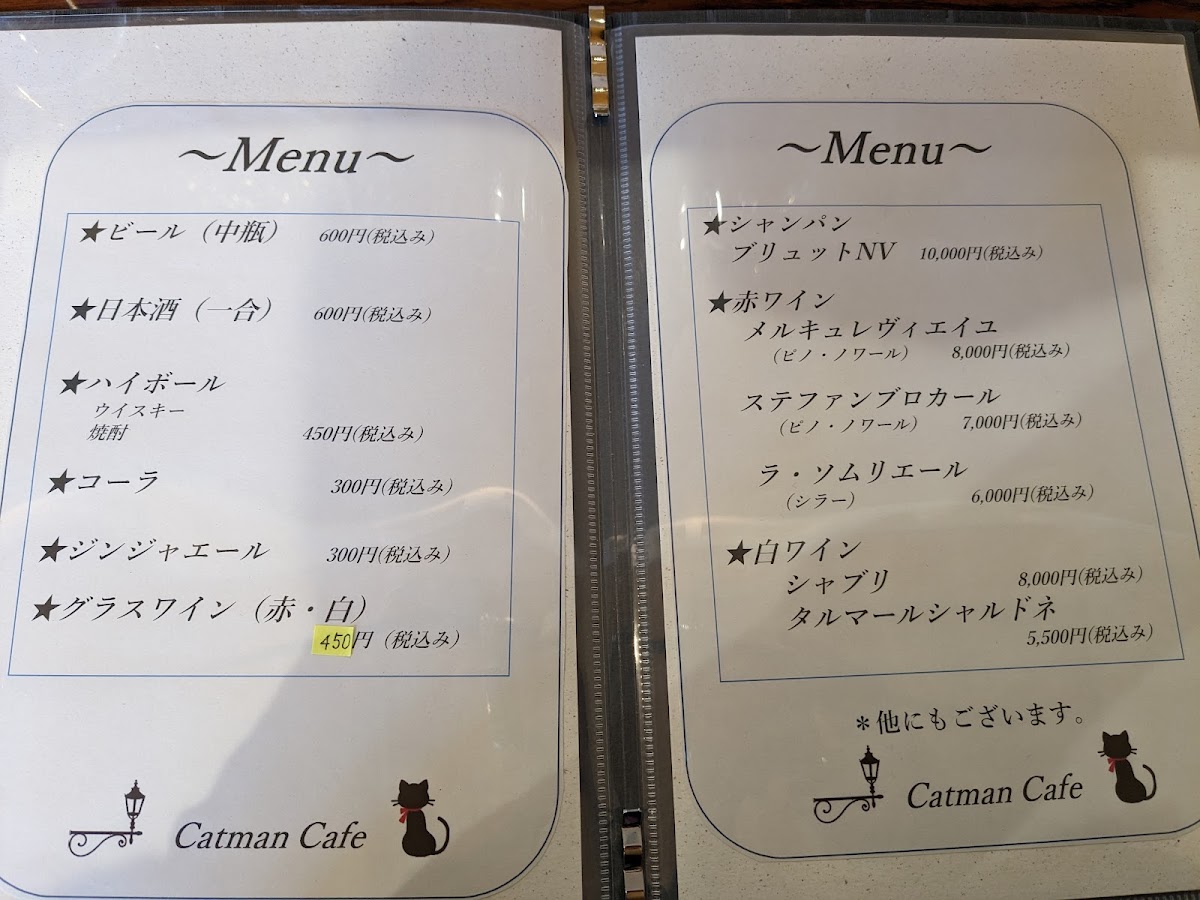 ～Menu～
★ビール（中瓶） 600円(税込み)
★日本酒（一合） 600円(税込み)
★ハイボール
ウイスキー
焼酎 450円(税込み)
★コーラ 300円(税込み)
★ジンジャエール 300円(税込み)
★グラスワイン（赤・白）
450円（税込み）
Catman Cafe
～Menu～
★シャンパン
ブリュットNV 10,000円(税込み)
★赤ワイン
メルキュレヴィエイユ
（ピノ・ノワール） 8,000円(税込み)
ステファンブロカール
（ピノ・ノワール） 7,000円(税込み)
ラ・ソムリエール
（シラー） 6,000円(税込み)
★白ワイン
シャブリ 8,000円(税込み)
タルマールシャルドネ
5,500円(税込み)
＊他にもございます。
Catman Cafe